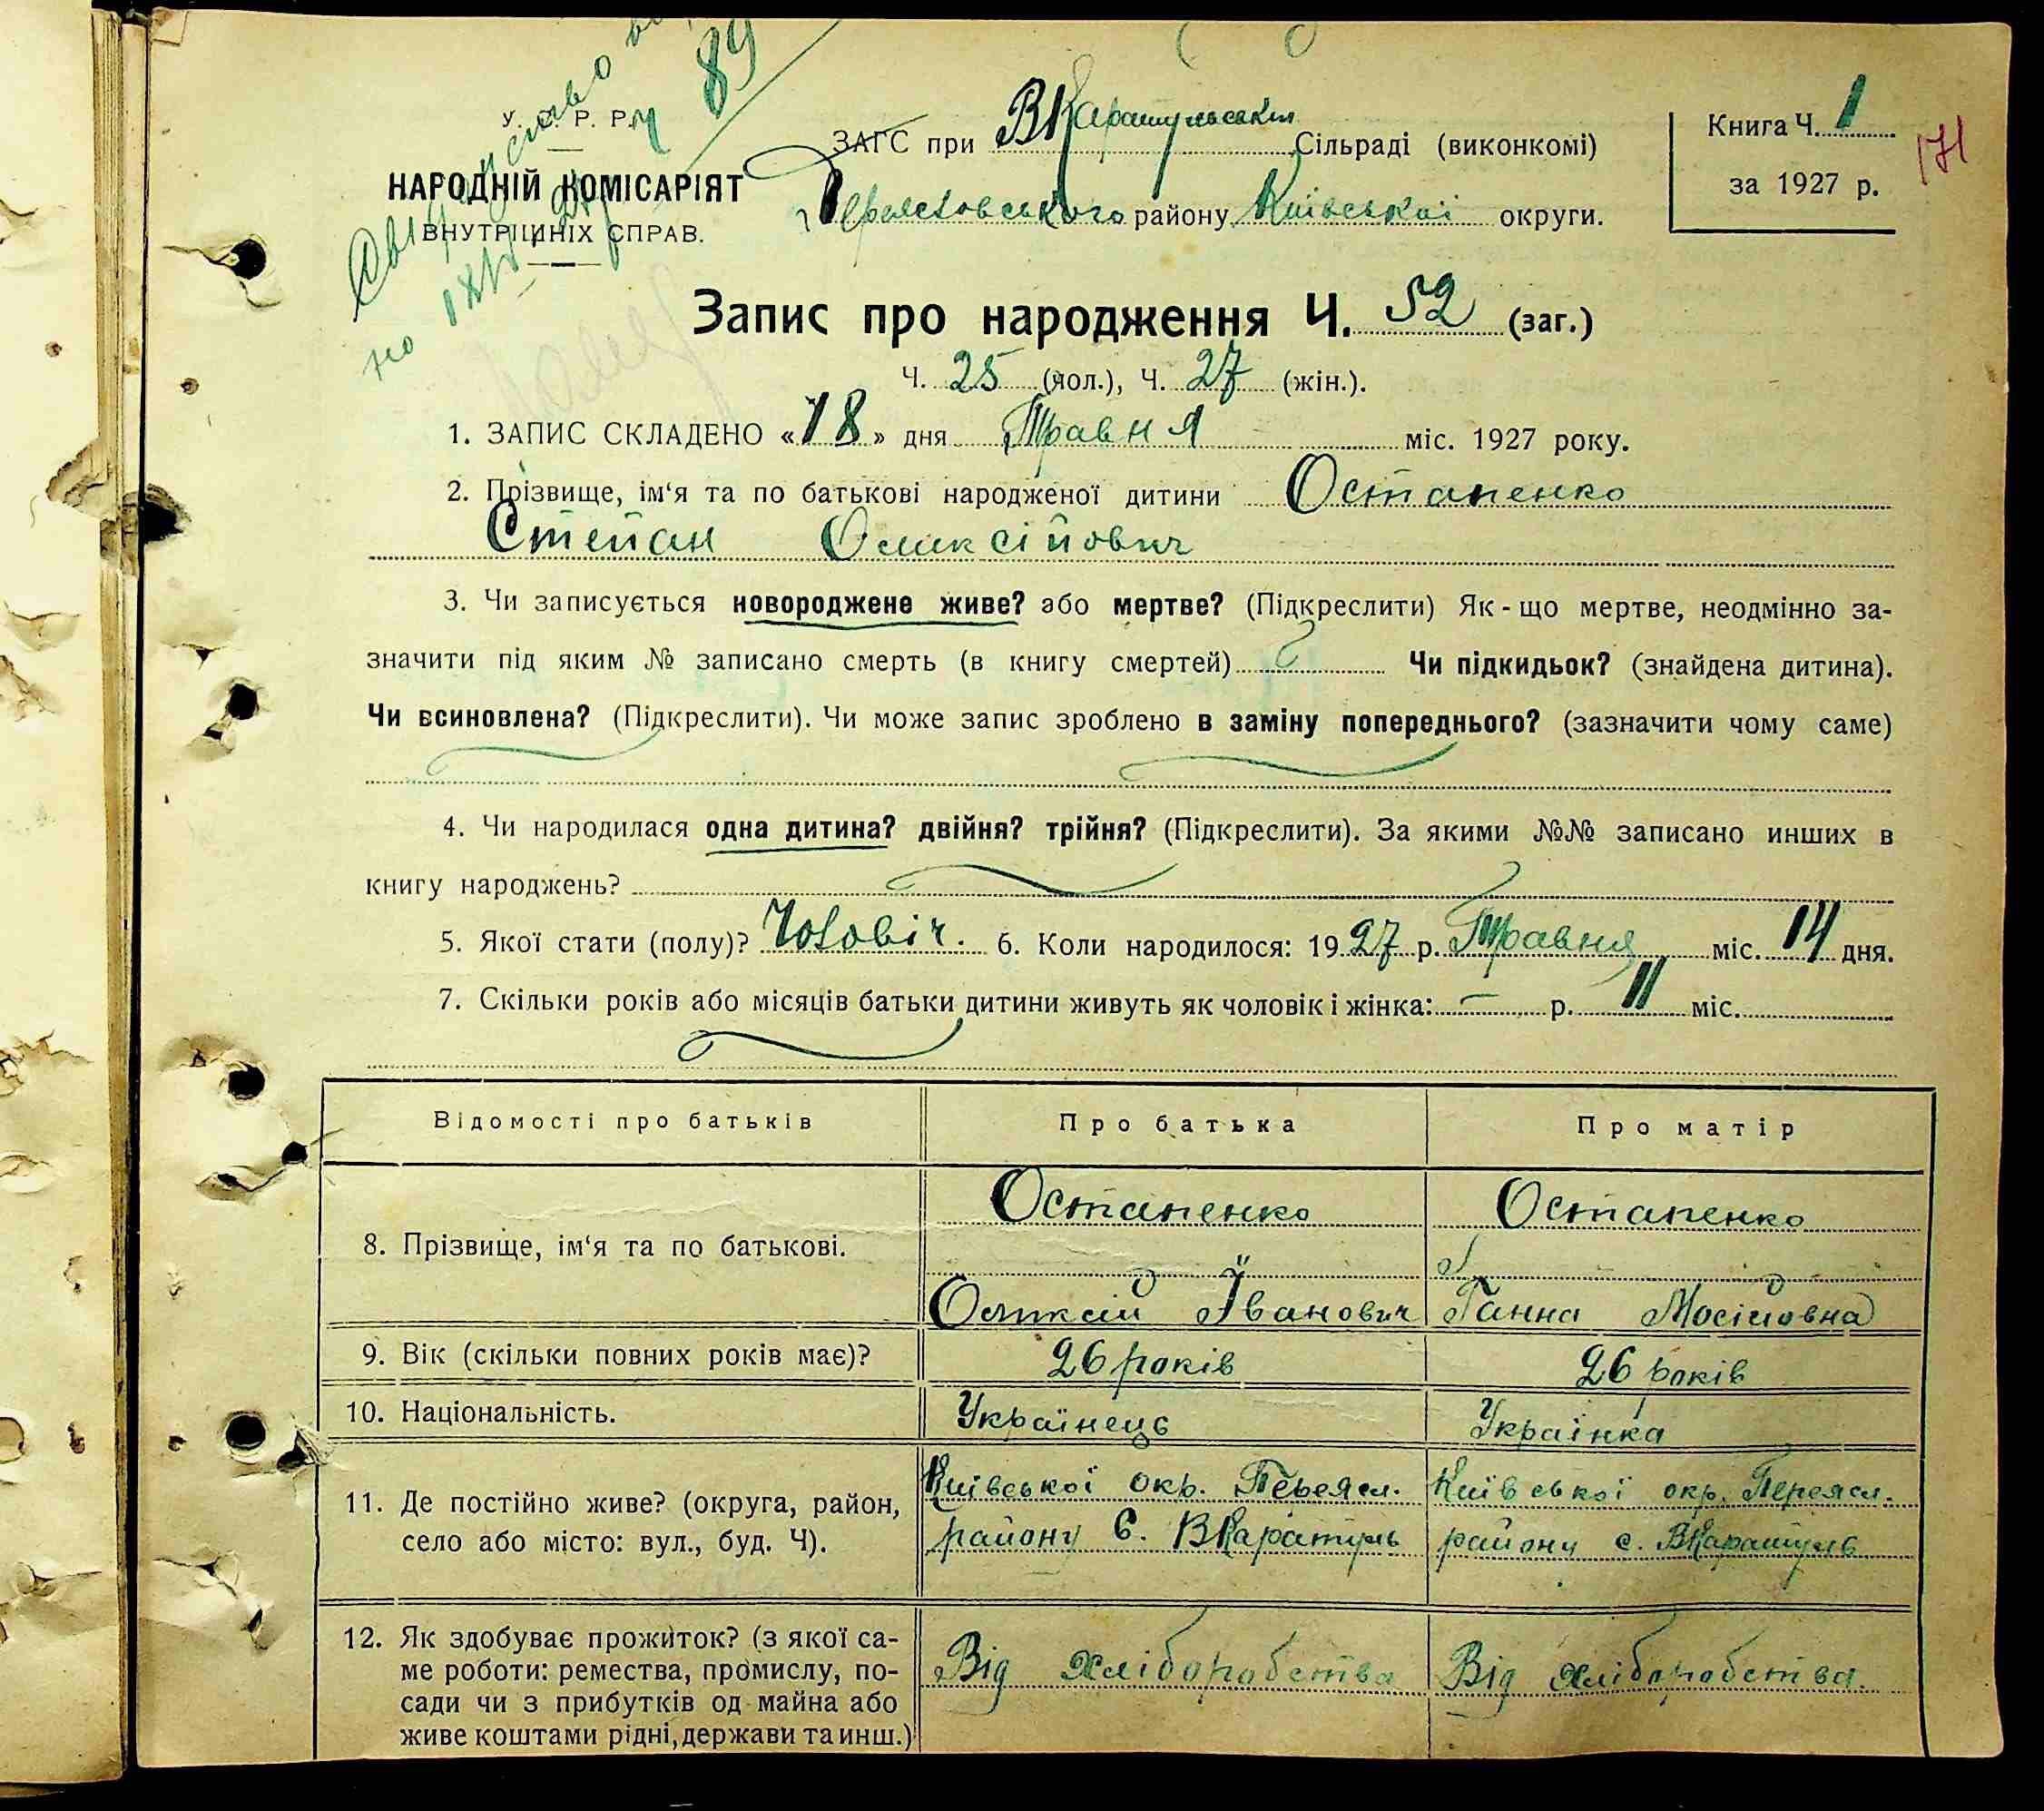 У. С. Р. Р.
НАРОДНІЙ КОМІСАРІЯТ
ВНУТРІШНІХ СПРАВ.
89
ЗАГС при ВКаратульській Сільраді (виконкомі)
Переяславського району Київської округи.
Книга Ч. 1
за 1927 р.
171
Запис про народження Ч. 52 (заг.)
Ч. 25 (чол.), Ч. 27 (жін.).
1. ЗАПИС СКЛАДЕНО «18» дня Травня міс. 1927 року.
2. Прізвище, ім‘я та по батькові народженої дитини Остапенко
Степан Олексійович
3. Чи записується новороджене живе? або мертве? (Підкреслити) Як-що мертве, неодмінно за-
значити під яким № записано смерть (в книгу смертей) Чи підкидьок? (знайдена дитина).
Чи всиновлена? (Підкреслити). Чи може запис зроблено в заміну попереднього? (зазначити чому саме)
4. Чи народилася одна дитина? двійня? трійня? (Підкреслити). За якими №№ записано инших в
книгу народжень?
5. Якої стати (полу)? Чоловіч. 6. Коли народилося: 1927 р. Травня міс. 14 дня.
7. Скільки років або місяців батьки дитини живуть як чоловік і жінка: — р. 11 міс.
Відомості про батьків Про батька Про матір
8. Прізвище, ім‘я та по батькові. Остапенко Остапенко
Олексій Іванович Ганна Мосіповна
9. Вік (скільки повних років має)? 26 років 26 років
10. Національність. Українець Українка
11. Де постійно живе? (округа, район, Київської окр. Переясл. Київської окр. Переясл.
село або місто: вул., буд. Ч). району С. ВКаратуль району с. ВКаратуль
12. Як здобуває прожиток? (з якої са- Від хліборобства Від хліборобства.
ме роботи: ремества, промислу, по-
сади чи з прибутків од майна або
живе коштами рідні, держави та инш.)